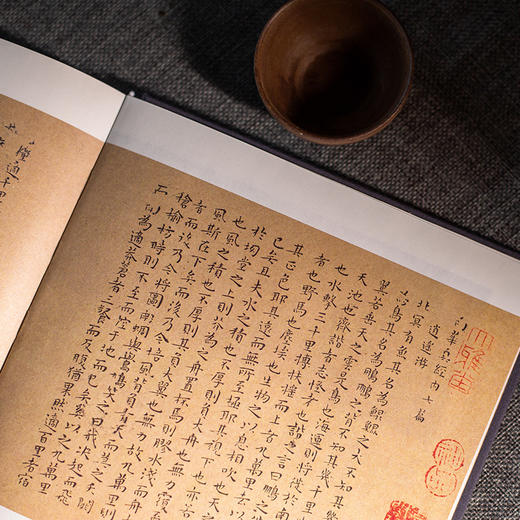 南華真經内七篇
逍遥游
北冥有魚其名為鯤鯤之大不知其幾
為鳥其名為鵬鵬之背不知其幾千里
翼若垂天之雲是鳥也海運則將徙於南
天池也齊諧者志怪者也諧之言曰鵬之
也水擊三千里摶扶搖而上者九萬里去以
者也野馬也塵埃也生物之以息相吹也天
其正色耶其遠而無所至極耶其視下也亦若
已矣且夫水之積也不厚則負大舟也無力
於坳堂之上則芥為之舟置杯焉則膠水淺而舟
也風之積也不厚則其負大翼也無力故九萬里則
風斯在下矣而後乃今培風背負青天而莫之夭閼
者而後乃今將圖南蜩與鷽鳩笑之曰我決起而飛
槍榆枋時則不至而控於地而已矣奚以之九萬里
而南為適莽蒼者三餐而反腹猶果然適百里者宿
糧適千里